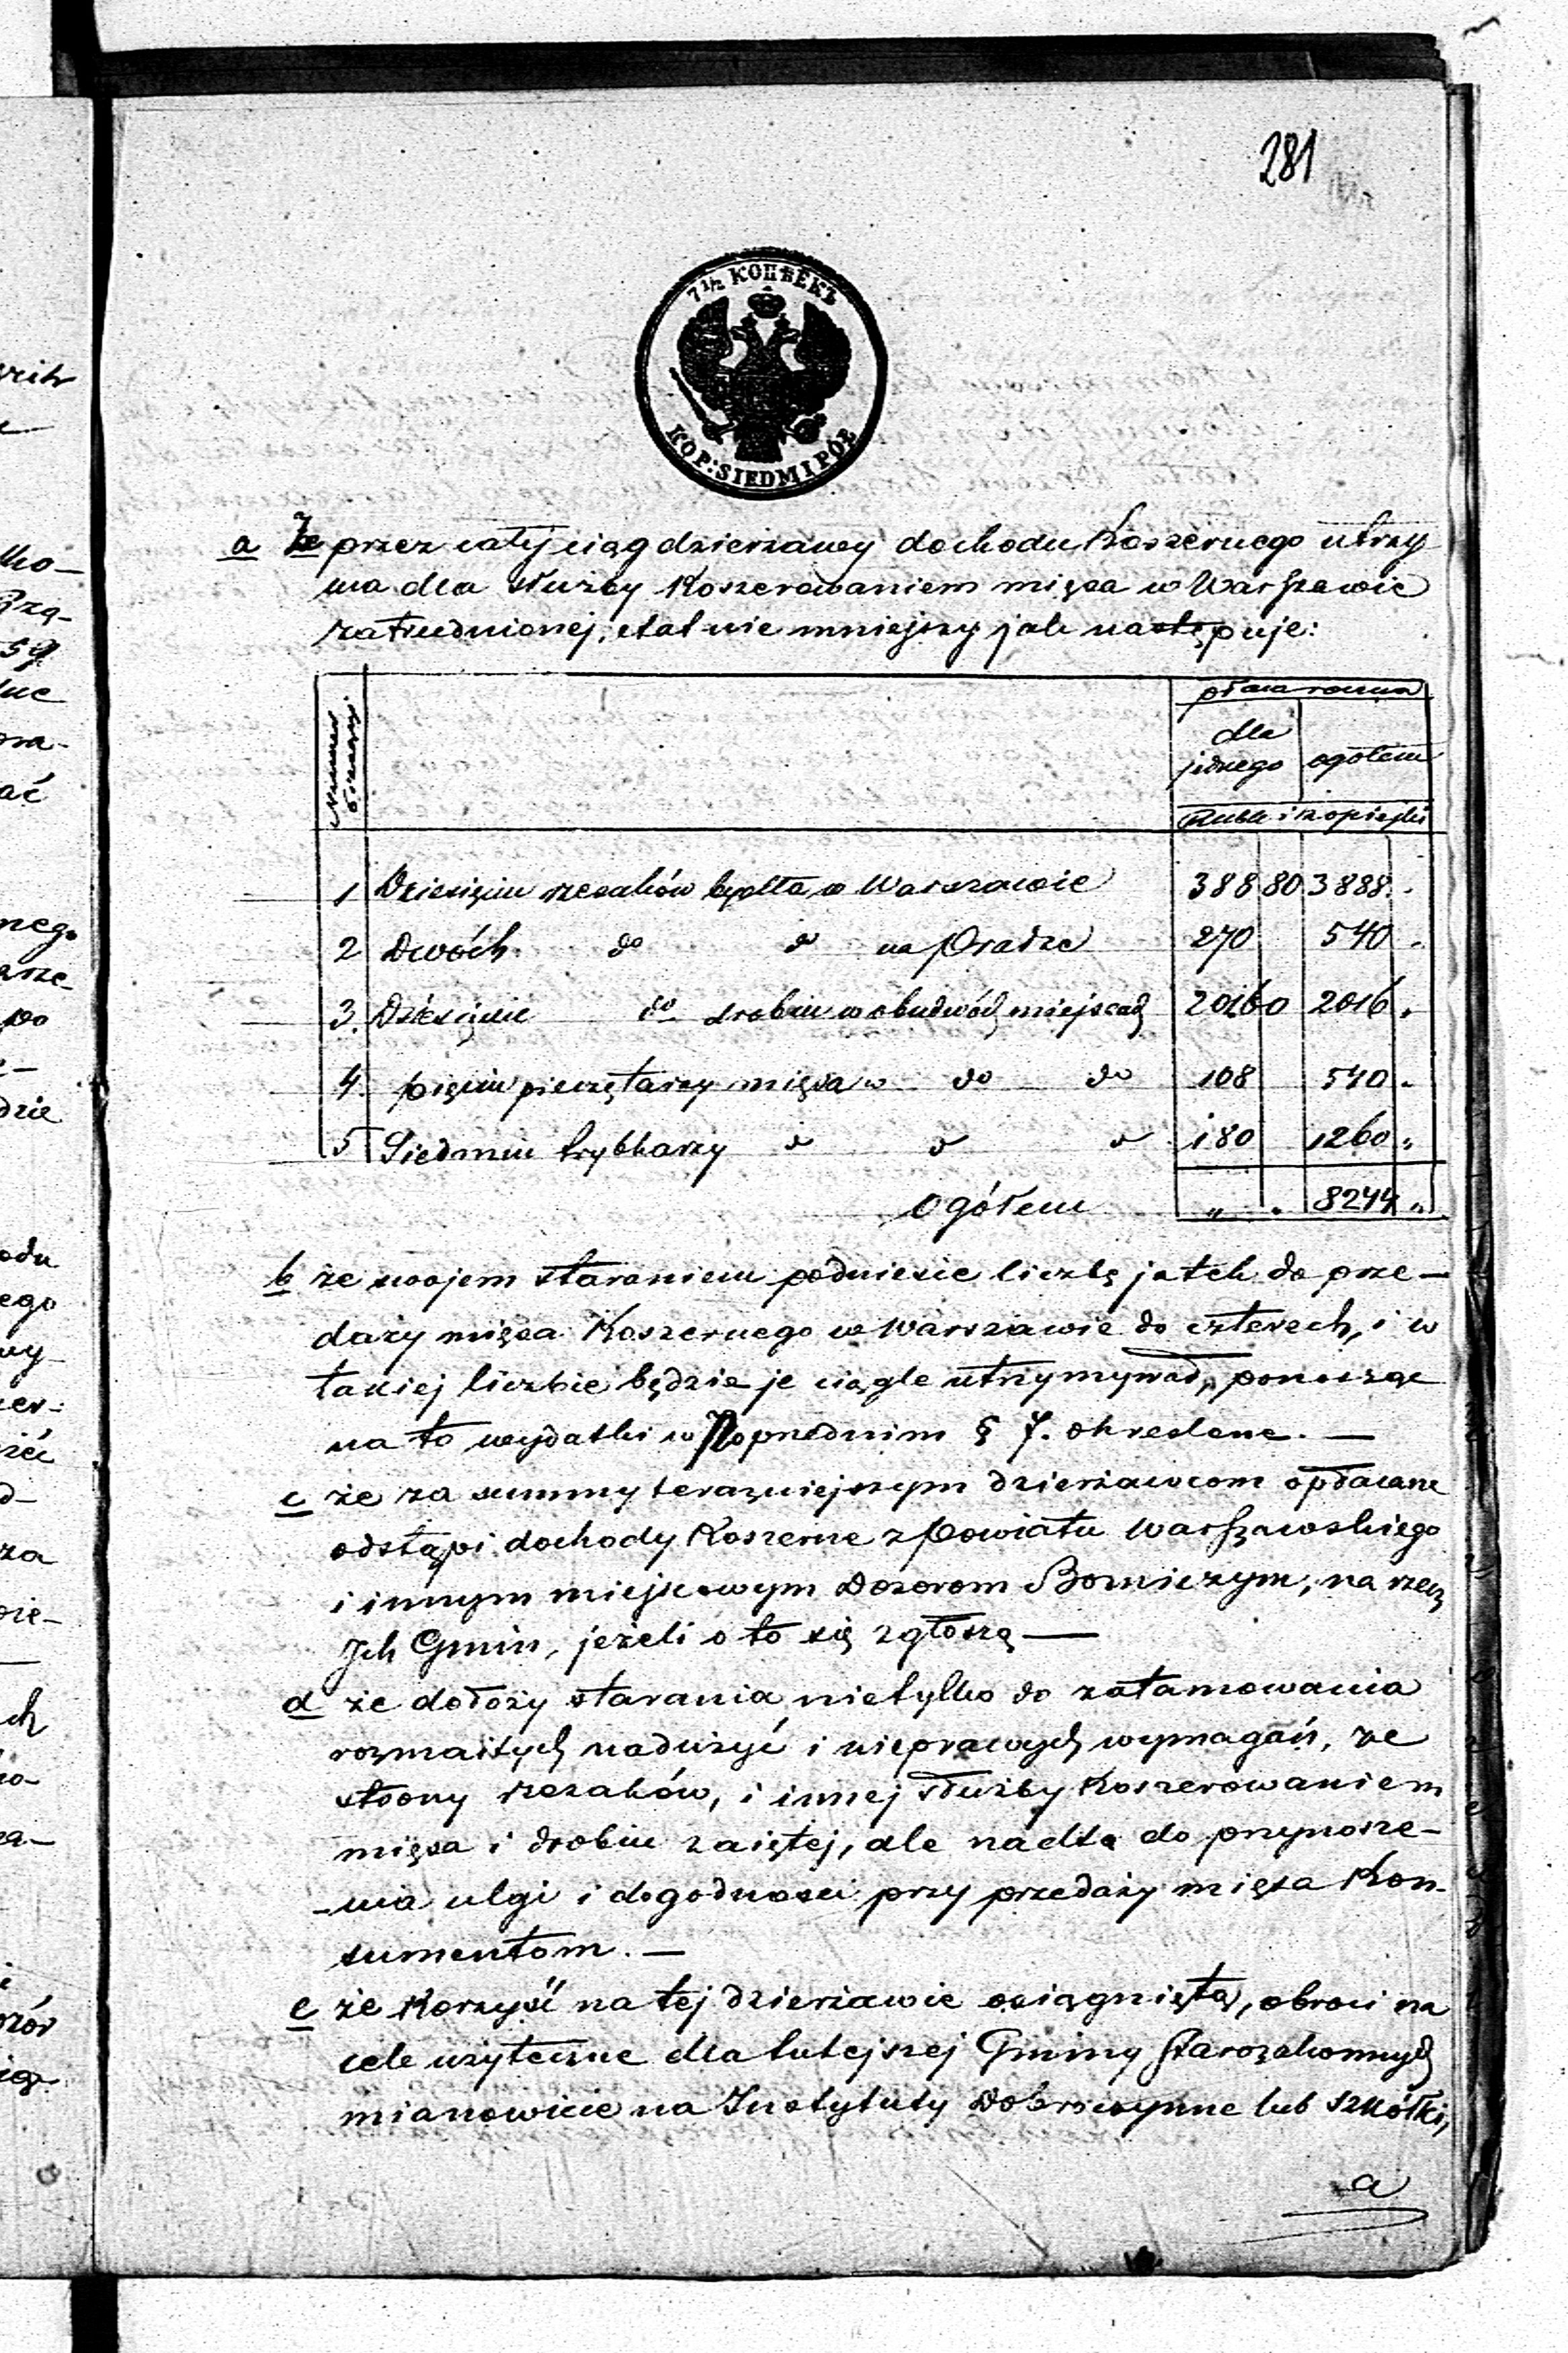 281
7 1/2 КОПѢЕКЪ
KOP: SIEDM I PÓŁ
a Że przez cały ciąg dzierżawy dochodu Koszernego utrzy
ma dla służby Koszerowaniem mięsa w Warszawie
zatrudnionej, etat nie mniejszy jak następuje:
Numer bieżący
płaca roczna
dla jednego
ogółem
Ruble i kopiejki
1 Dziesięciu rzezaków bydła w Warszawie 388 80 3888 .
2 Dwóch do do na Pradze 270 540 .
3. Dziesięciu do drobiu w obudwóch miejscach 201 60 2016 .
4. pięciu pieczętarzy mięsa w do do 108 540 .
5 Siedmiu trybkarzy do do do 180 1260 „
Ogółem „ . 8244 „
b że swojem staraniem podniesie liczbę jatek do prze–
daży mięsa Koszernego w Warszawie do czterech, i w
takiej liczbie będzie je ciągle utrzymywać, ponosząc
na to wydatki w Poprzednim § 7. okreslone. —
c że za summy teraźniejszym dzierżawcom opłacane
odstąpi dochody Koszerne z Powiatu Warszawskiego
i innym miejscowym Dozorom Bożniczym, na rzecz
Ich Gmin, jeżeli o to się zgłoszą —
d że dołoży starania nietylko do zatamowania
rozmaitych nadużyć i nieprawych wymagań, ze
strony rzezaków, i innej służby Koszerowaniem
mięsa i drobiu zaiętej, ale nadto do przynosze–
–nia ulgi i dogodności przy przedaży mięsa Kon–
sumentom. —
e że Korzyść na tej dzierżawie osiągniętą, obroci na
cele użyteczne dla tutejszej Gminy Starozakonnych
mianowicie na Instytuty Dobroczynne lub szkółki,
a